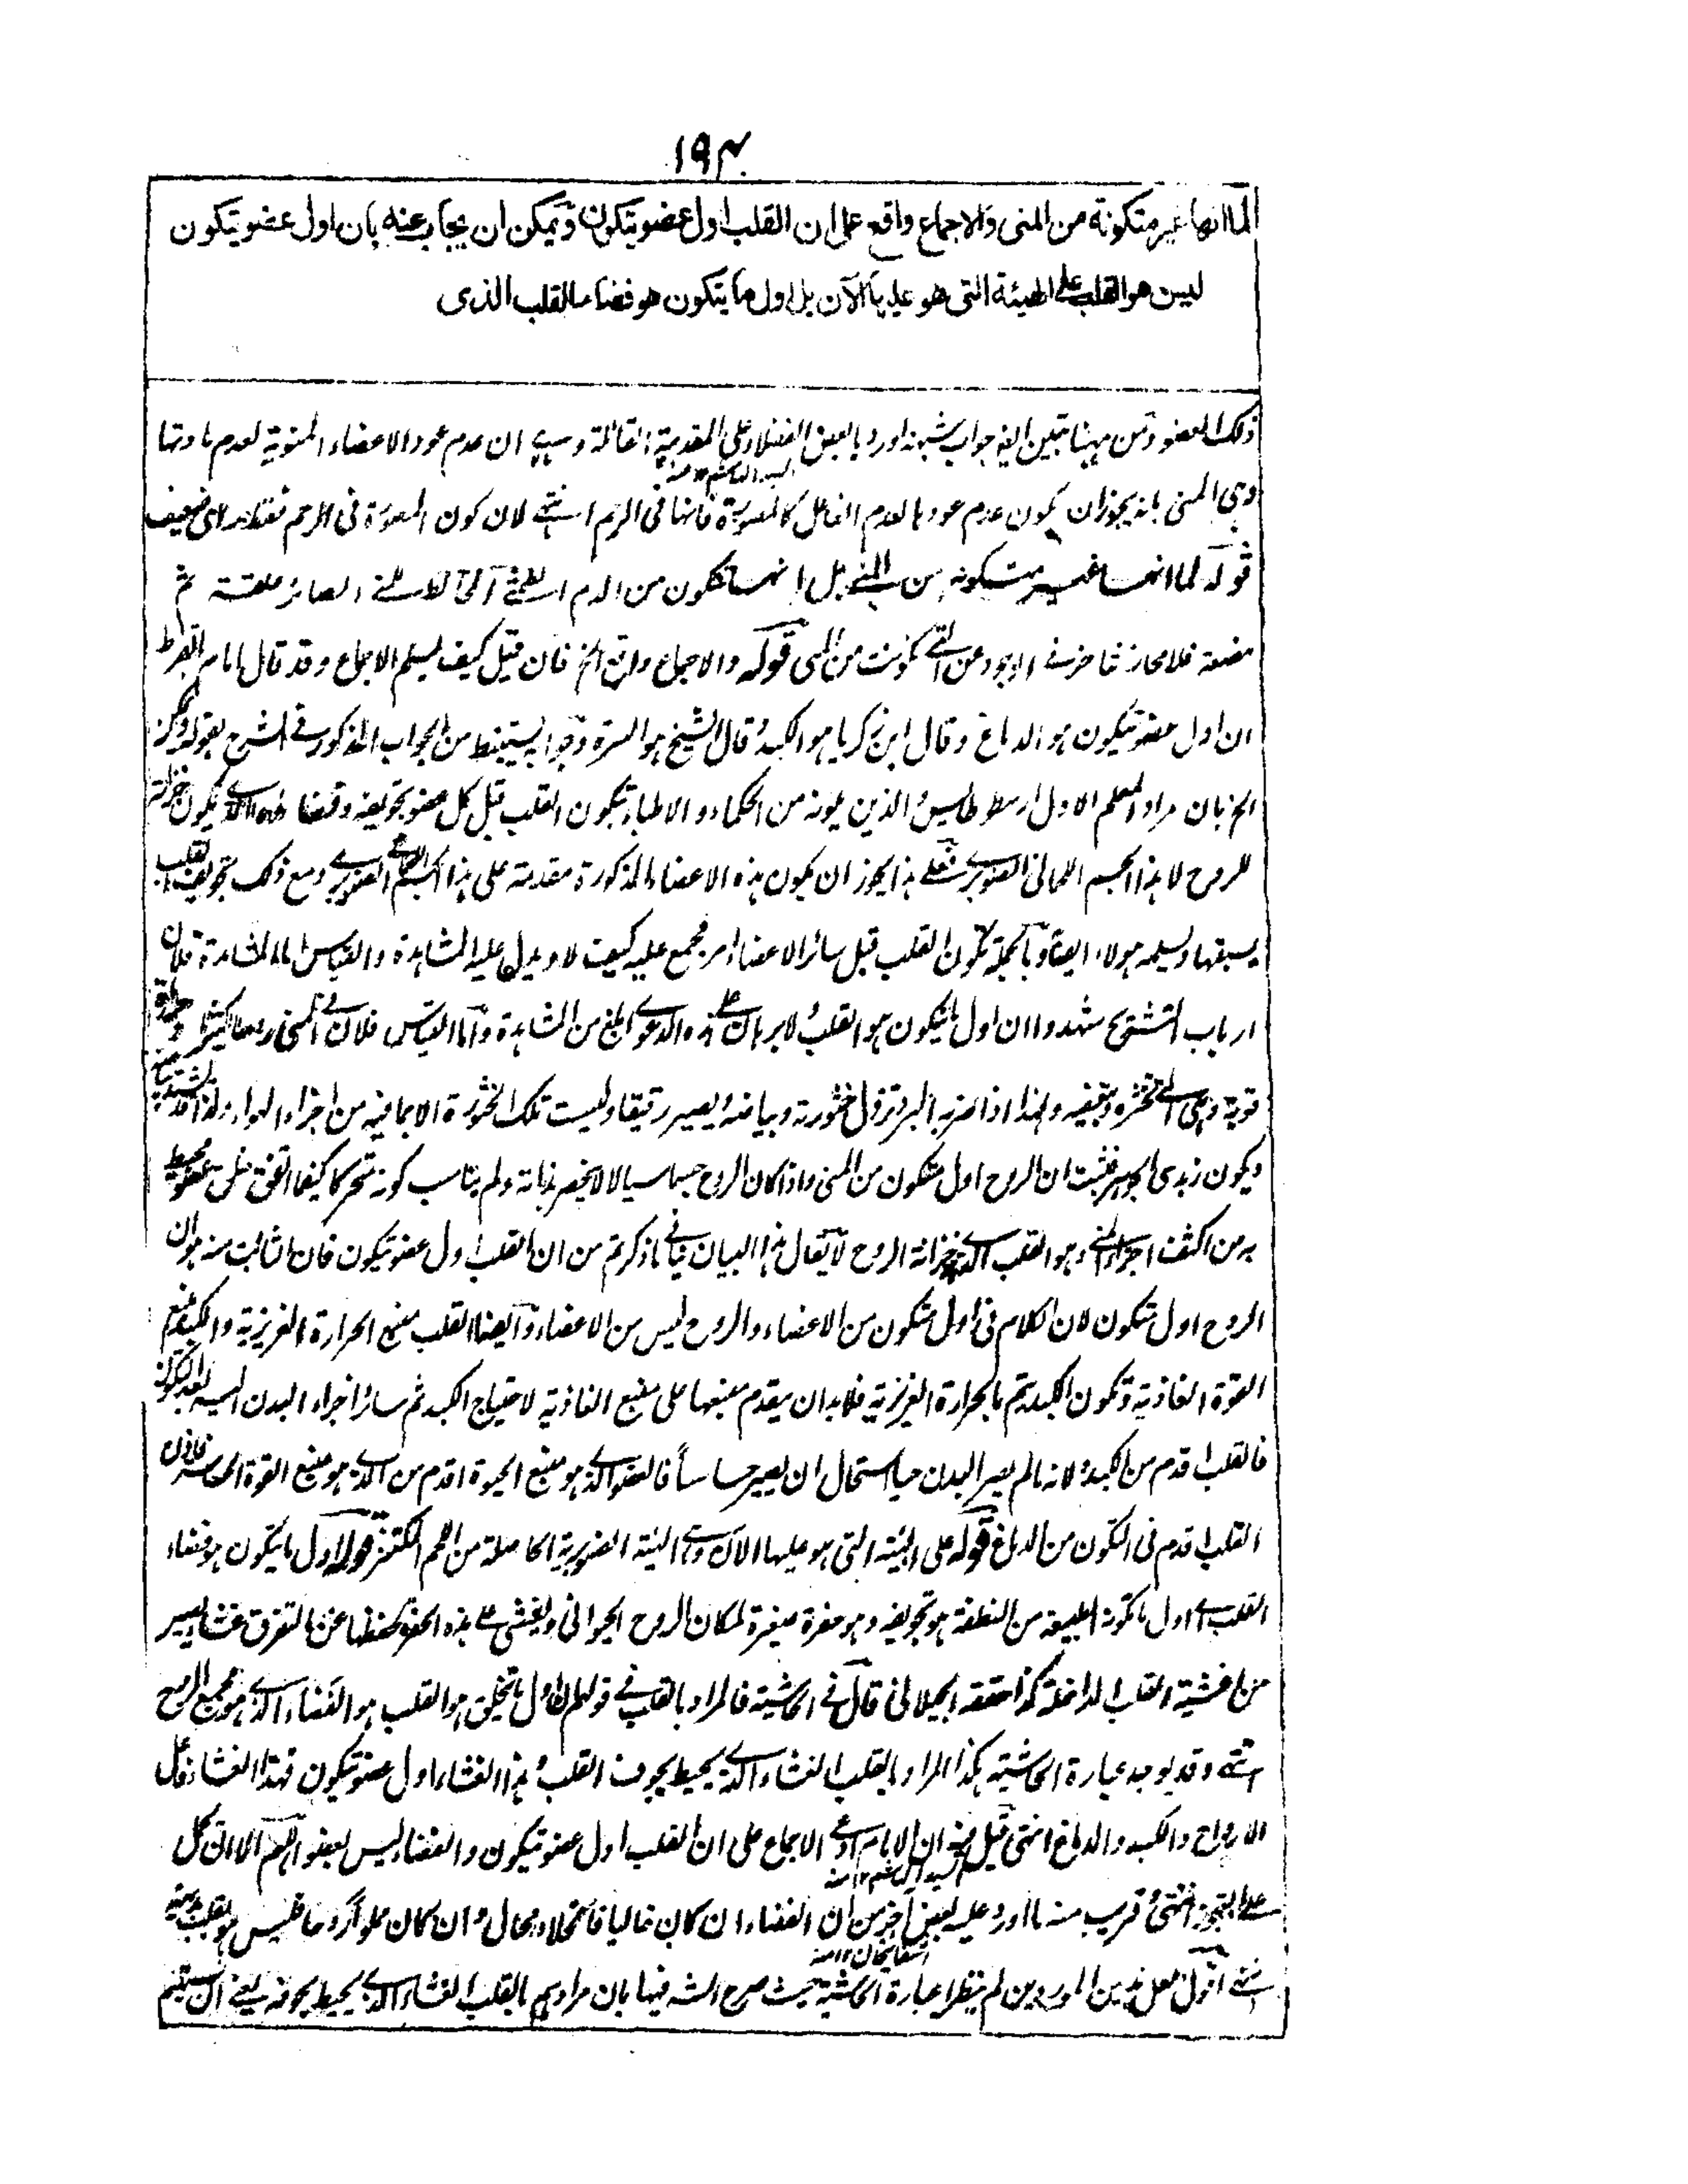 ١٩٤
لما انها غير متكونة من المنى والاجماع واقع على ان القلب اول عضو يتكون ويمكن ان يجاب عنه بان اول عضو يتكون
ليس هو القلب على الهيئة التى هو عليها الآن بل اول ما يتكون هو فضاء القلب الذى
ذلك العضو ومن ههنا تبين جواب شبهة اوردها بعض الفضلاء على المقدمة القائلة وهى ان عدم عود الاعضاء المنوية لعدم مادتها
وهى المنى بانه يجوز ان يكون عدم عودها لعدم الفاعل كالمصورة فانها فى الرحم انتهى لان كون المصورة فى الرحم فقط راى ضعيف
قوله لما انها غير متكونة من المنى بل انها تتكون من الدم الطمثى الصائر علقة ثم
مضغة فلا محالة تتاخر فى الوجود عن التى تكونت من المنى قوله والاجماع واقع الخ فان قيل كيف يسلم الاجماع وقد قال امام بقراط
ان اول عضو يتكون هو الدماغ وقال ابن زكريا هو الكبد وقال الشيخ هو السرة وجوابه يستنبط من الجواب المذكور فى الشرح بقوله ويمكن
الخ بان مراد المعلم الاول ارسطوطاليس والذين يلونه من الحكماء والاطباء بتكون القلب قبل كل عضو تجويفه وفضاءه الذى يكون خزانة
للروح لا هذا الجسم اللحمانى الصنوبرى فعلى هذا يجوز ان يكون هذه الاعضاء المذكورة مقدمة على هذا الجسم الصنوبرى ومع ذلك تجويف القلب
يسبقها ويسلمه هؤلاء ايضا وبالجملة تكون القلب قبل سائر الاعضاء امر مجمع عليه كيف لا ويدل عليه المشاهدة والقياس اما المشاهدة فلان
ارباب التشريح شهدوا ان اول ما يتكون هو القلب ولا برهان على هذه الدعوى ابلغ من المشاهدة واما القياس فلان فى المنى روحا كثيرا
قوية وهى التى تخثره وتبيضه ولهذا اذا ضربه البرد تزول خثورته وبياضه ويصير رقيقا وليست تلك الخثورة الا بما فيه من اجزاء الهواء
ويكون زبدى الجوهر فثبت ان الروح اول متكون من المنى واذا كان الروح جسما سيالا لا ينحصر بذاته ولم يناسب كونه متحركا كيفما اتفق خلق عضو محيط
به من اكثف اجزاء المنى وهو القلب الذى هو خزانة الروح لا يقال هذا البيان ينافى ما ذكرتم من ان القلب اول عضو يتكون فان الثابت منه هو ان
الروح اول متكون لان الكلام فى اول متكون من الاعضاء والروح ليس من الاعضاء وايضا القلب منبع الحرارة الغريزية والكبد منبع
القوة الغاذية وتكون الكبد يتم بالحرارة الغريزية فلا بد ان يتقدم منبعها على منبع الغاذية لاحتياج الكبد ثم سائر اجزاء البدن اليه بعد التكون
فالقلب اقدم من الكبد ولانه ما لم يصر البدن حيا استحال ان يصير حساسا فالعضو الذى هو منبع الحيوة اقدم من الذى هو منبع القوة الحاسة فاذن
القلب اقدم فى التكون من الدماغ قوله على الهيئة التى هو عليها الآن وهى الهيئة الصنوبرية الحاصلة من اللحم المكتنز قوله اول ما يتكون هو فضاء
القلب اى اول ما تكونه الطبيعة من النطفة هو تجويفه وهو حفرة صغيرة لمكان الروح الحيوانى ويغشى على هذه الحفرة تحفظها عن التفرق غشاء يصير
من اغشية القلب الداخلة كذا حققه الجيلانى قال فى الحاشية فالمراد بالقلب فى قولهم اول ما يتخلق هو القلب هو الفضاء الذى هو مجمع الروح
انتهى وقد يوجد عبارة الحاشية هكذا المراد بالقلب الغشاء الذى يحيط بجوف القلب وهذا الغشاء اول عضو يتكون فهذا الغشاء قبل
الارواح والكبد والدماغ انتهى قيل ان الامام ادعى الاجماع على ان القلب اول عضو يتكون والفضاء ليس بعضو اللهم الا ان يحمل
على التجوز انتهى وقريب منه ما اورد عليه بعض آخر من ان الفضاء ان كان خاليا فالخلاء محال وان كان مملوا روحا فليس هو بقلب
انتهى اقول لعل هذين الموردين لم ينظرا عبارة الحاشية حيث صرح الشارح فيها بان مرادهم بالقلب الغشاء الذى يحيط بجوفه